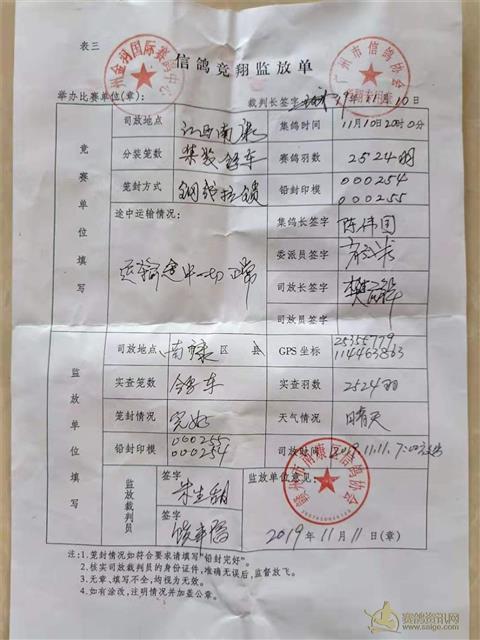 表三
信鸽竞翔监放单
举办比赛单位(章): 裁判长签字 19年11月10日
竞赛单位填写
司放地点 江西南康 集鸽时间 11月10日20时0分
分装笼数 集装鸽车 赛鸽羽数 2524羽
笼封方式 钢丝拉锁 铅封印模 000254 000255
途中运输情况: 集鸽长签字 陈伟国
运输途中一切正常 委派员签字
司放长签字
司放员签字
监放单位填写
司放地点 南康区 县 GPS坐标 25355779 114463863
实查笼数 鸽车 实查羽数 2524羽
笼封情况 完好 天气情况 晴天
铅封印模 000255 000254 司放时间 2019.11.11.7:00
监放裁判员 签字 监放单位意见:
签字
2019年11月11日(章)
州金羽国际赛鸽中心
广州市信鸽协会
赣州市南康区信鸽协会
注:1.笼封情况如符合要求请填写"铅封完好"。
2.核实司放裁判员的身份证件,准确无误后,监督放飞。
3.无章、填写不全,均视为无效。
4.如有涂改,注明情况并加盖公章。
赛鸽资讯网
www.saige.com